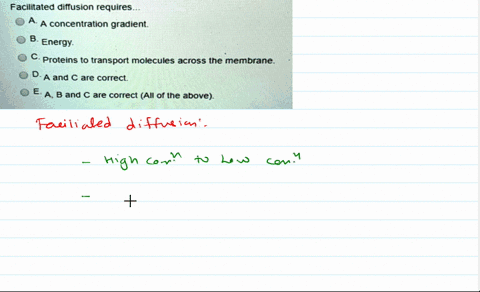 Facilitated diffusion requires...
A. A concentration gradient.
B. Energy.
C. Proteins to transport molecules across the membrane.
D. A and C are correct.
E. A, B and C are correct (All of the above).
Faciliated diffusion:
- High conⁿ to Low conⁿ
-